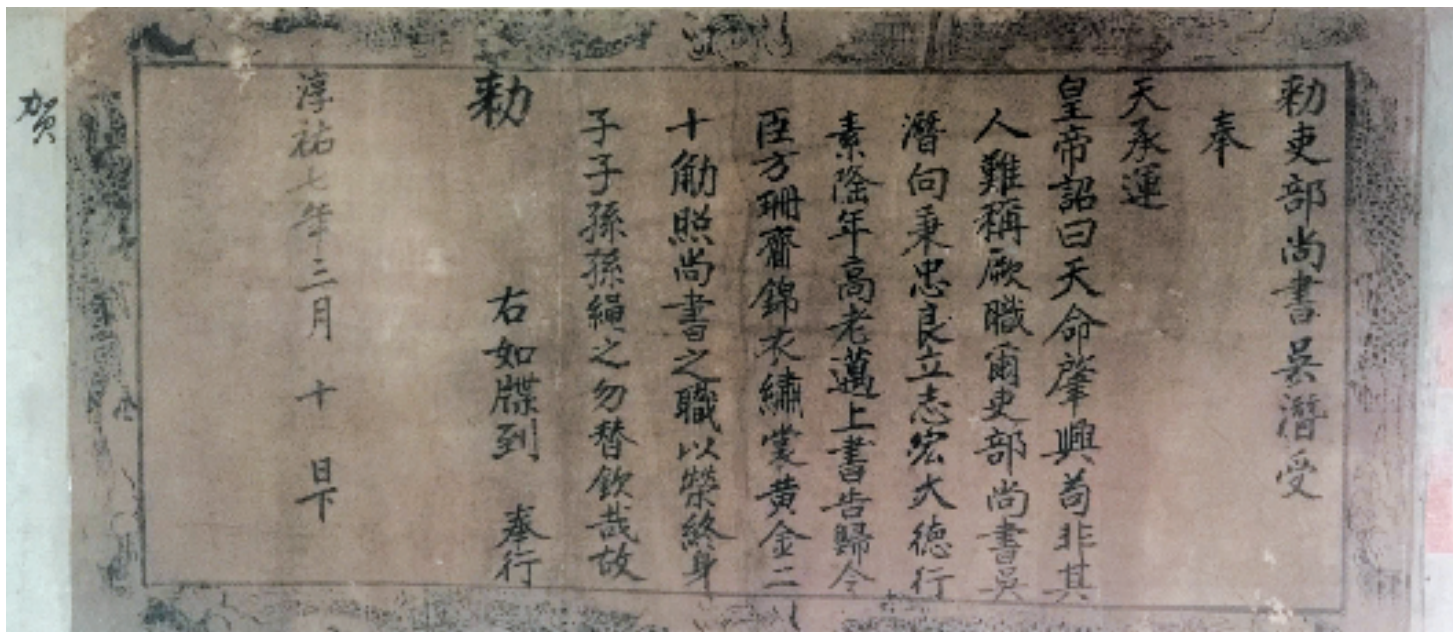 勑吏部尚書吳潛受
奉
天承運
皇帝詔曰天命肇興苟非其
人難稱厥職爾吏部尚書吳
潛向秉忠良立志宏大德行
素隆年高老邁上書告歸今
臣方珊齎錦衣繡裳黄金二
十觔照尚書之職以榮終身
子子孫孫繩之勿替欽哉故
勑
右如牒到 奉行
淳祐七年三月十一日下
賀